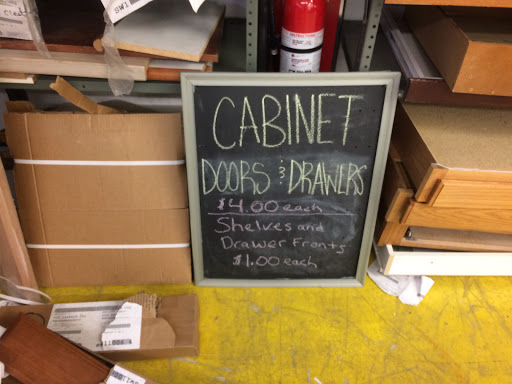 CABINET
DOORS & DRAWERS
$4.00 each
Shelves and
Drawer Fronts
$1.00 each